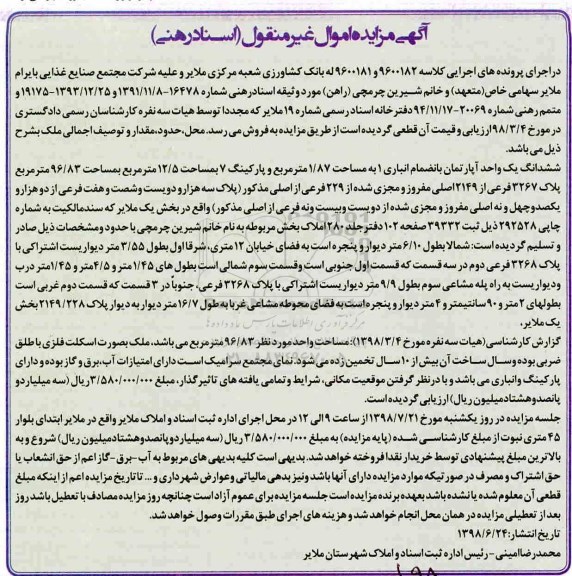 آگهی مزایده اموال غیر منقول (اسناد رهنی)
در اجرای پرونده های اجرایی کلاسه ۹۶۰۰۱۸۲ و ۹۶۰۰۱۸۱ له بانک کشاورزی شعبه مرکزی ملایر و علیه شرکت مجتمع صنایع غذایی بایرام
ملایر سهامی خاص (متعهد) و خانم شیرین چرمچی (راهن) مورد وثیقه اسناد رهنی شماره ۱۶۴۷۸-۱۳۹۱/۱۱/۸ و ۱۳۹۳/۱۲/۲۵-۱۹۱۷۵ و
متمم رهنی شماره ۲۰۰۶۹-۹۴/۱۱/۱۷ دفترخانه اسناد رسمی شماره ۱۹ ملایر که مجددا توسط هیات سه نفره کارشناسان رسمی دادگستری
در مورخ ۹۸/۳/۴ ارزیابی و قیمت آن قطعی گردیده است از طریق مزایده به فروش می رسد. محل، حدود، مقدار و توصیف اجمالی ملک بشرح
ذیل می باشد.
ششدانگ یک واحد آپارتمان بانضمام انباری ۱ به مساحت ۱/۸۷ مترمربع و پارکینگ ۷ بمساحت ۱۲/۵ مترمربع بمساحت ۹۶/۸۳ مترمربع
پلاک ۳۲۶۷ فرعی از ۲۱۴۹ اصلی مفروز و مجزی شده از ۲۲۹ فرعی از اصلی مذکور (پلاک سه هزار و دویست و شصت و هفت فرعی از دو هزار و
یکصد و چهل و نه اصلی مفروز و مجزی شده از دویست و بیست و نه فرعی از اصلی مذکور) واقع در بخش یک ملایر که سند مالکیت به شماره
چاپی ۲۹۲۵۲۸ ذیل ثبت ۳۹۳۳۲ صفحه ۱۰۲ دفتر جلد ۲۸۰ املاک بخش مربوطه به نام خانم شیرین چرمچی با حدود و مشخصات ذیل صادر
و تسلیم گردیده است: شمالا بطول ۶/۱۰ متر دیوار و پنجره است به فضای خیابان ۱۲ متری، شرقا اول بطول ۳/۵۵ متر دیواریست اشتراکی با
پلاک ۳۲۶۸ فرعی دوم در سه قسمت که قسمت اول جنوبی است و قسمت سوم شمالی است بطول های ۱/۴۵ متر و ۴/۵ متر و ۱/۴۵ متر درب
و دیواریست به راه پله مشاعی سوم بطول ۹/۹ متر دیواریست اشتراکی با پلاک ۳۲۶۸ فرعی، جنوباً در ۳ قسمت که قسمت دوم غربی است
بطولهای ۲ متر و ۹۰ سانتیمتر و ۴ متر دیوار و پنجره است به فضای محوطه مشاعی غربا به طول ۱۶/۷ متر دیوار به دیوار پلاک ۲۱۴۹/۲۲۸ بخش
یک ملایر.
گزارش کارشناسی (هیات سه نفره مورخ ۱۳۹۸/۳/۴): مساحت واحد مورد نظر ۹۶/۸۳ مترمربع می باشد، ملک بصورت اسکلت فلزی با طاق
ضربی بوده و سال ساخت آن بیش از ۱۰ سال تخمین زده می شود. نمای مجتمع سرامیک است دارای امتیازات آب، برق و گاز بوده و دارای
پارکینگ و انباری می باشد و با در نظر گرفتن موقعیت مکانی، شرایط و تمامی یافته های تاثیرگذار، مبلغ ۳/۵۸۰/۰۰۰/۰۰۰ ریال (سه میلیارد و
پانصد و هشتاد میلیون ریال) ارزیابی گردیده است.
جلسه مزایده در روز یکشنبه مورخ ۱۳۹۸/۷/۲۱ از ساعت ۹ الی ۱۲ در محل اجرای اداره ثبت اسناد و املاک ملایر واقع در ملایر ابتدای بلوار
۴۵ متری نبوت از مبلغ کارشناسی شده (پایه مزایده) به مبلغ ۳/۵۸۰/۰۰۰/۰۰۰ ریال (سه میلیارد و پانصد و هشتاد میلیون ریال) شروع و به
بالاترین مبلغ پیشنهادی توسط خریدار نقدا فروخته خواهد شد. بدیهی است کلیه بدیهی های مربوط به آب-برق-گاز اعم از حق انشعاب یا
حق اشتراک و مصرف در صورتیکه مورد مزایده دارای آنها باشد و نیز بدهی مالیاتی و عوارض شهرداری و ... تا تاریخ مزایده اعم از اینکه مبلغ
قطعی آن معلوم شده یا نشده باشد بعهده برنده مزایده است جلسه مزایده برای عموم آزاد است چنانچه روز مزایده مصادف با تعطیل باشد روز
بعد از تعطیلی مزایده در همان محل انجام خواهد شد و هزینه های اجرای طبق مقررات وصول خواهد شد.
تاریخ انتشار: ۱۳۹۸/۶/۲۴
محمدرضا امینی- رئیس اداره ثبت اسناد و املاک شهرستان ملایر